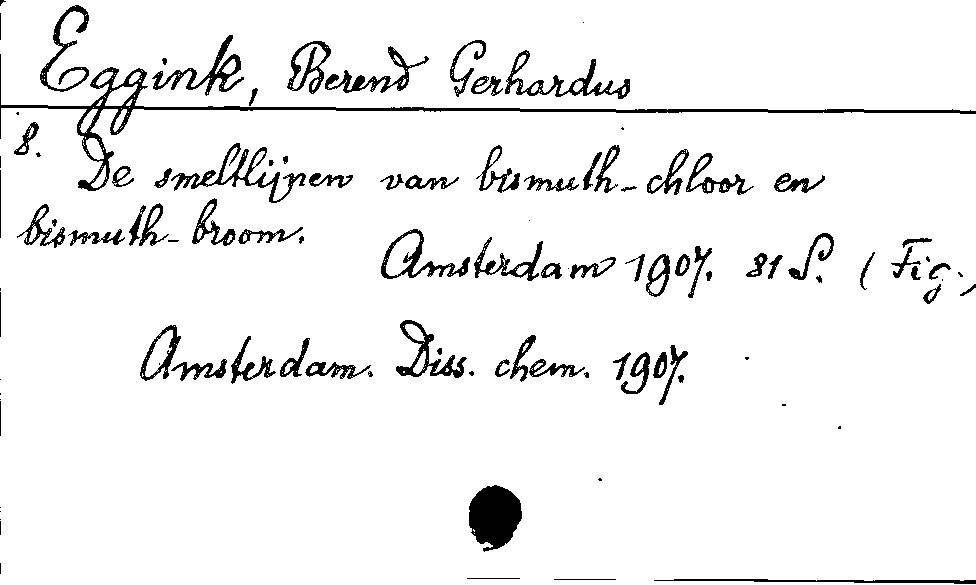 Eggink, Berend Gerhardus
8. De smeltlijnen van bismuth-chloor en
bismuth-broom.
Amsterdam 1907. 81 S. (Fig.,
Amsterdam. Diss. chem. 1907.